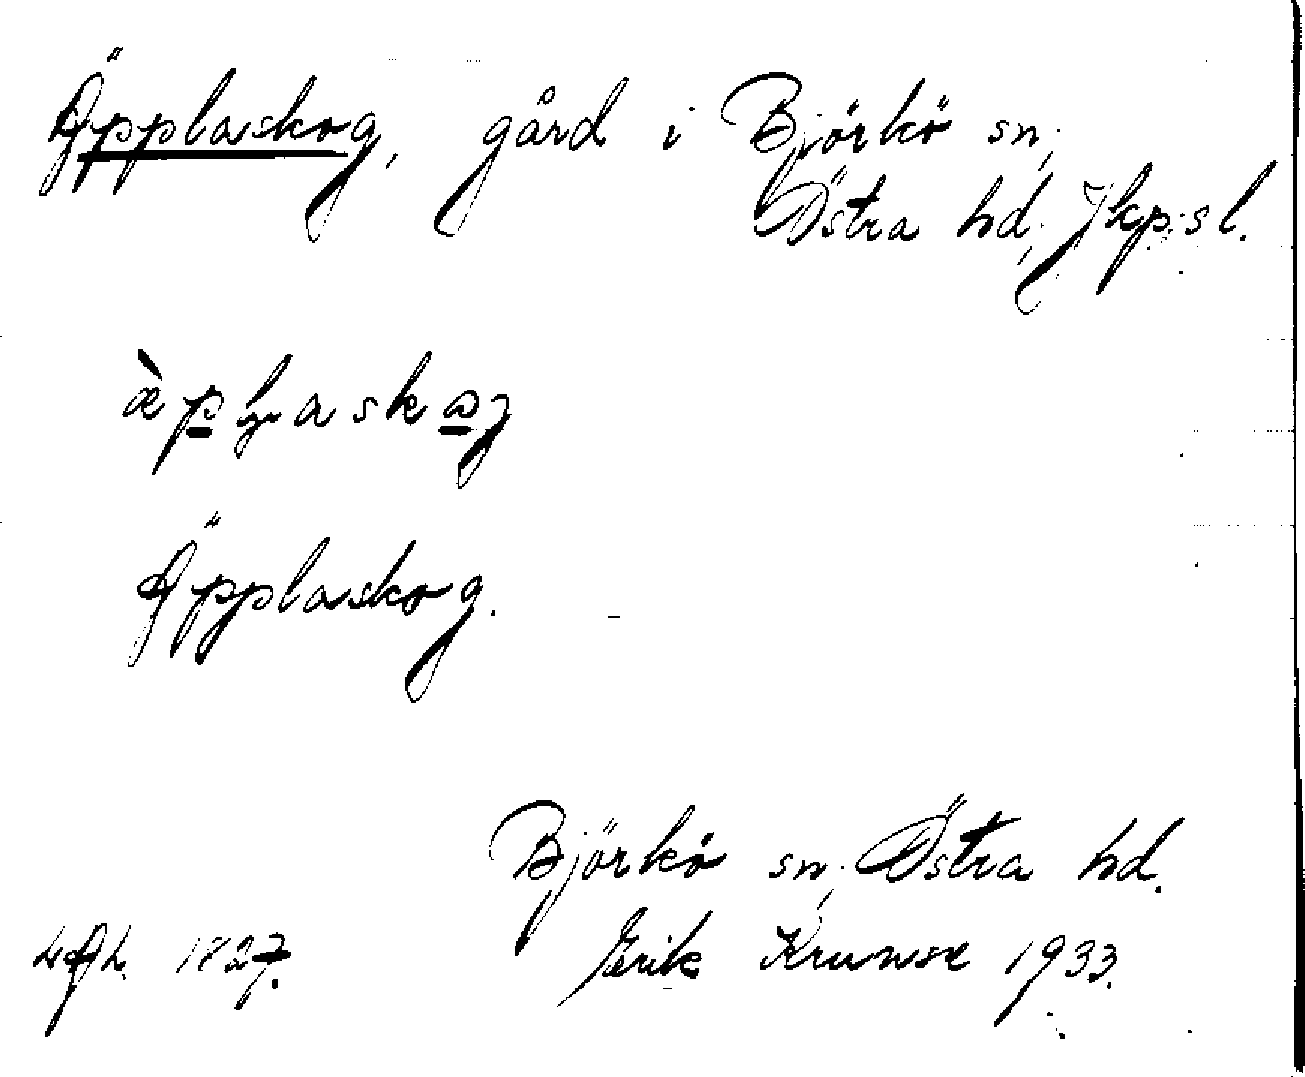 Äpplaskog, gård i Björkö sn;
Östra hd; Jkp:s l.
Äpplaskog.
Björkö sn; Östra hd.
1827. Erik Krunse 1933.